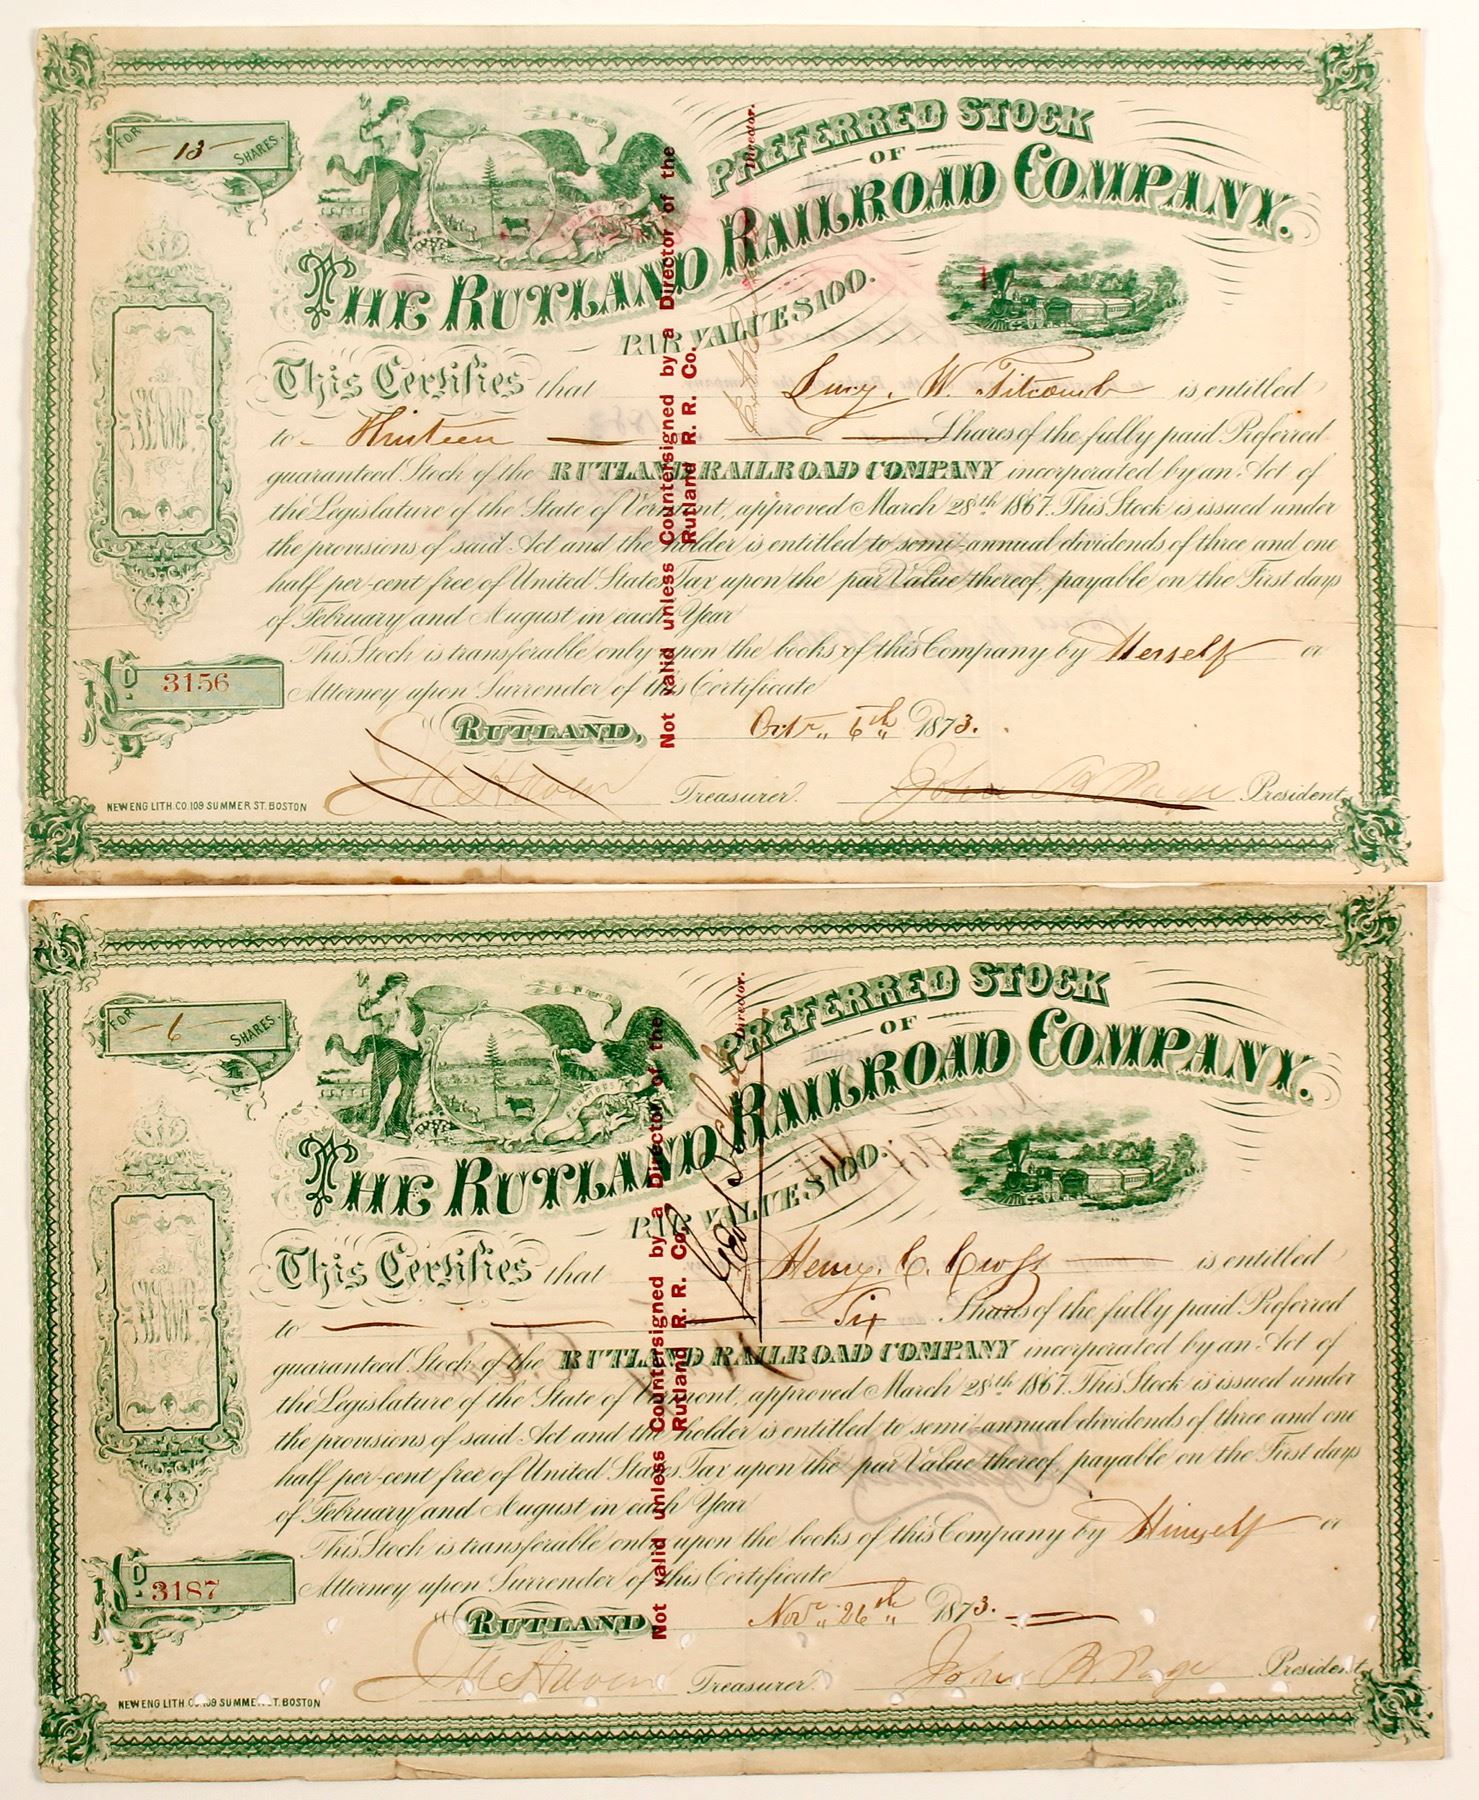 FOR 13 SHARES.
PREFERRED STOCK
OF
THE RUTLAND RAILROAD COMPANY.
PAR VALUE $100.
This Certifies that Lucy. W. Titcomb is entitled
to Thirteen Shares of the fully paid Preferred
guaranteed Stock of the RUTLAND RAILROAD COMPANY incorporated by an Act of
the Legislature of the State of Vermont, approved March 28th 1867. This Stock is issued under
the provisions of said Act and the holder is entitled to semi-annual dividends of three and one
half per-cent free of United States Tax upon the par Value thereof, payable on the First days
of February and August in each Year
This Stock is transferable only upon the books of this Company by Herself or
Attorney upon Surrender of this Certificate
No. 3156
RUTLAND, Octr 6th 1873.
J M Haven Treasurer. John B. Page President.
NEW ENG LITH. CO. 109 SUMMER ST. BOSTON
Not valid unless Countersigned by a Director of the
Rutland R. R. Co.
Director.
FOR 6 SHARES.
PREFERRED STOCK
OF
THE RUTLAND RAILROAD COMPANY.
PAR VALUE $100.
This Certifies that Henry. C. is entitled
to Six Shares of the fully paid Preferred
guaranteed Stock of the RUTLAND RAILROAD COMPANY incorporated by an Act of
the Legislature of the State of Vermont, approved March 28th 1867. This Stock is issued under
the provisions of said Act and the holder is entitled to semi-annual dividends of three and one
half per-cent free of United States Tax upon the par Value thereof, payable on the First days
of February and August in each Year
This Stock is transferable only upon the books of this Company by Himself or
Attorney upon Surrender of this Certificate
No. 3187
RUTLAND Novr 26th 1873.
J M Haven Treasurer. John B. Page President.
NEW ENG LITH. CO. 109 SUMMER ST. BOSTON
Not valid unless Countersigned by a Director of the
Rutland R. R. Co.
Director.